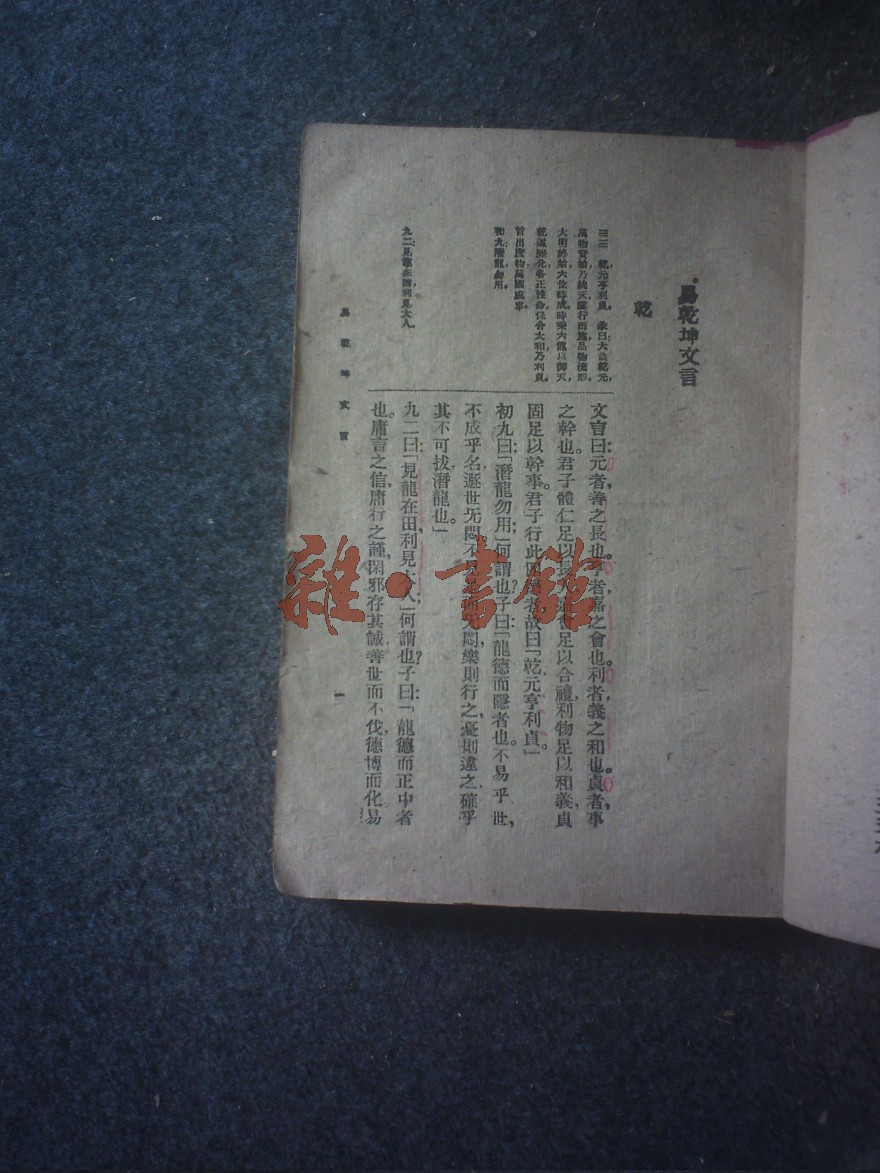 易乾坤文言
乾
乾元亨利貞 故曰大哉乾元,
萬物資始乃統天雲行雨施品物流形
大明終始六位時成時乘六龍以御天
乾道變化各正性命保合太和乃利貞
首出庶物萬國咸寧
初九潛龍勿用。
九二見龍在田利見大人
文言曰:元者,善之長也。亨者,嘉之會也。利者,義之和也。貞者,事
之幹也。君子體仁足以長人嘉會足以合禮,利物足以和義,貞
固足以幹事。君子行此四德者故曰「乾元亨利貞。」
初九曰:「潛龍勿用」何謂也?子曰:「龍德而隱者也。不易乎世,
不成乎名,遯世无悶,不見是而无悶,樂則行之,憂則違之,確乎
其不可拔,潛龍也。」
九二曰:「見龍在田利見大人」何謂也?子曰:「龍德而正中者
也。庸言之信,庸行之謹,閑邪存其誠,善世而不伐,德博而化。易
易乾坤文言
一
雜·書舘